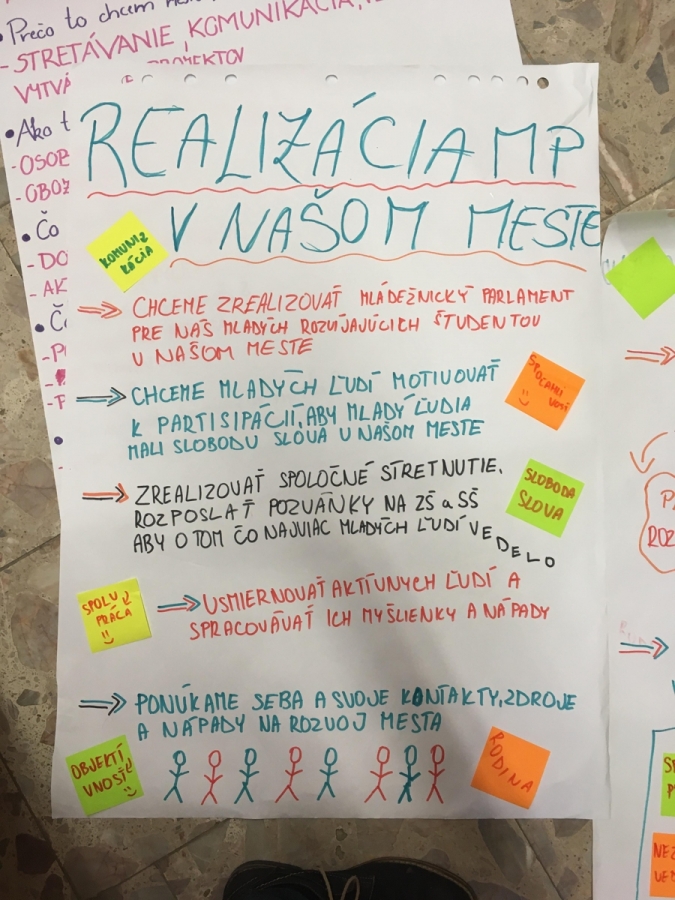 Prečo to chcem
- STRETÁVANIE, KOMUNIKÁCIA,
VYTVÁ
PROJEKTOV
• Ako
- OSOB
- OBOZ
• Čo
- DO
- AK
REALIZÁCIA MP
V NAŠOM MESTE
KOMUNIZ
KÁCIA
CHCEME ZREALIZOVAŤ MLÁDEŽNICKÝ PARLAMENT
PRE NÁS MLADÝCH ROZVÍJAJÚCICH ŠTUDENTOV
V NAŠOM MESTE
CHCEME MLADÝCH ĽUDÍ MOTIVOVAŤ
K PARTISIPÁCIÍ, ABY MLADÝ ĽUDIA
MALI SLOBODU SLOVA V NAŠOM MESTE
ZREALIZOVAŤ SPOLOČNÉ STRETNUTIE.
ROZPOSLAŤ POZVÁNKY NA ZŠ a SŠ
ABY O TOM ČO NAJVIAC MLADÝCH ĽUDÍ VEDELO
SLOBODA
SLOVA
SPOLU
PRÁCA
USMIERNOVAŤ AKTÍVNYCH ĽUDÍ A
SPRACOVÁVAŤ ICH MYŠLIENKY A NÁPADY
PONÚKAME SEBA A SVOJE KONTAKTY, ZDROJE
A NÁPADY NA ROZVOJ MESTA
OBJEKTÍ
VNOSŤ
RODINA
ROZ
NEZ